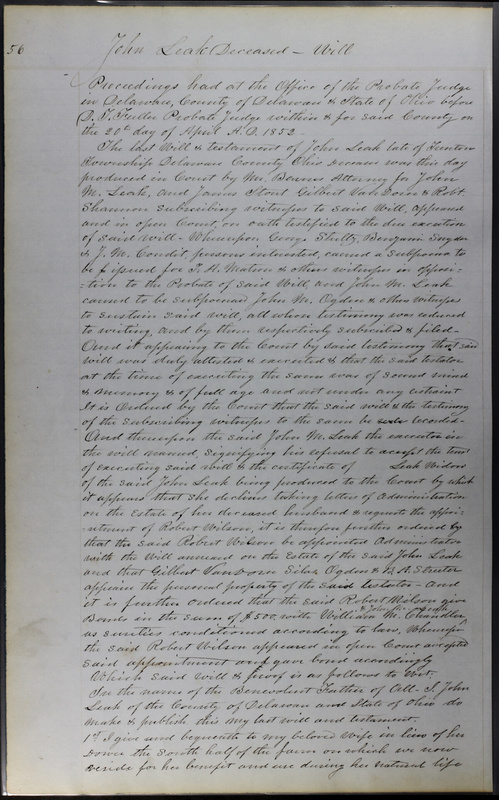 56
John Leak Deceased - Will
Proceedings had at the Office of the Probate Judge
in Delaware, County of Delaware & State of Ohio before
D. T. Fuller Probate Judge within & for said County on
the 20th day of April A.D. 1852.
The last Will & testament of John Leak late of
Township Delaware County Ohio Deceased was this day
produced in Court by Mr. Attorney for John
M. Leak, and James Stout Gilbert VanDorn & Robt.
Shannon subscribing witnesses to said Will, appeared
and in open Court, on oath testified to the due execution
of said will - Whereupon George Shultz, Benjamin Snyder
& J. M. Condit, persons interested, caused a Subpoena to
be issued for T. H. Matson & other witnesses in opposi-
-tion to the Probate of said Will, and John M. Leak
caused to be subpoenaed John M. Ogden & other witnesses
to sustain said will, all whose testimony was reduced
to writing, and by them respectively subscribed & filed -
And it appearing to the Court by said testimony that said
will was duly attested & executed & that the said testator
at the time of executing the same was of sound mind
& memory & of full age and not under any restraint
It is Ordered by the Court that the said will & the testimony
of the subscribing witnesses to the same be recorded -
And thereupon the said John M. Leak the executor in
the will named, signifying his refusal to accept the trust
of executing said will & the certificate of Leak Widow
of the said John Leak being produced to the Court by which
it appears that she declines taking letters of Administration
on the Estate of her deceased husband & requests the appoi-
-ntment of Robert Wilson, it is thereupon further ordered by
that the said Robert Wilson be appointed Administrator
with the Will annexed on the Estate of the said John Leak
and that Gilbert VanDorn Silas Ogden & A. Streeter
appraise the personal property of the said testator - and
it is further ordered that the said Robert Wilson give
Bonds in the sum of $500, with William M. Chandler
& John M. Leak
as sureties conditioned according to law, Whereupon
the said Robert Wilson appeared in open Court accepted
said appointment and gave bond accordingly
Which said Will & proof is as follows to Wit.
In the name of the Benevolent Father of All - I, John
Leak of the County of Delaware and State of Ohio do
make & publish this my last will and testament.
1st I give and bequeath to my beloved Wife in lieu of her
Dower the South half of the farm on which we now
reside for her benefit and use during her natural life